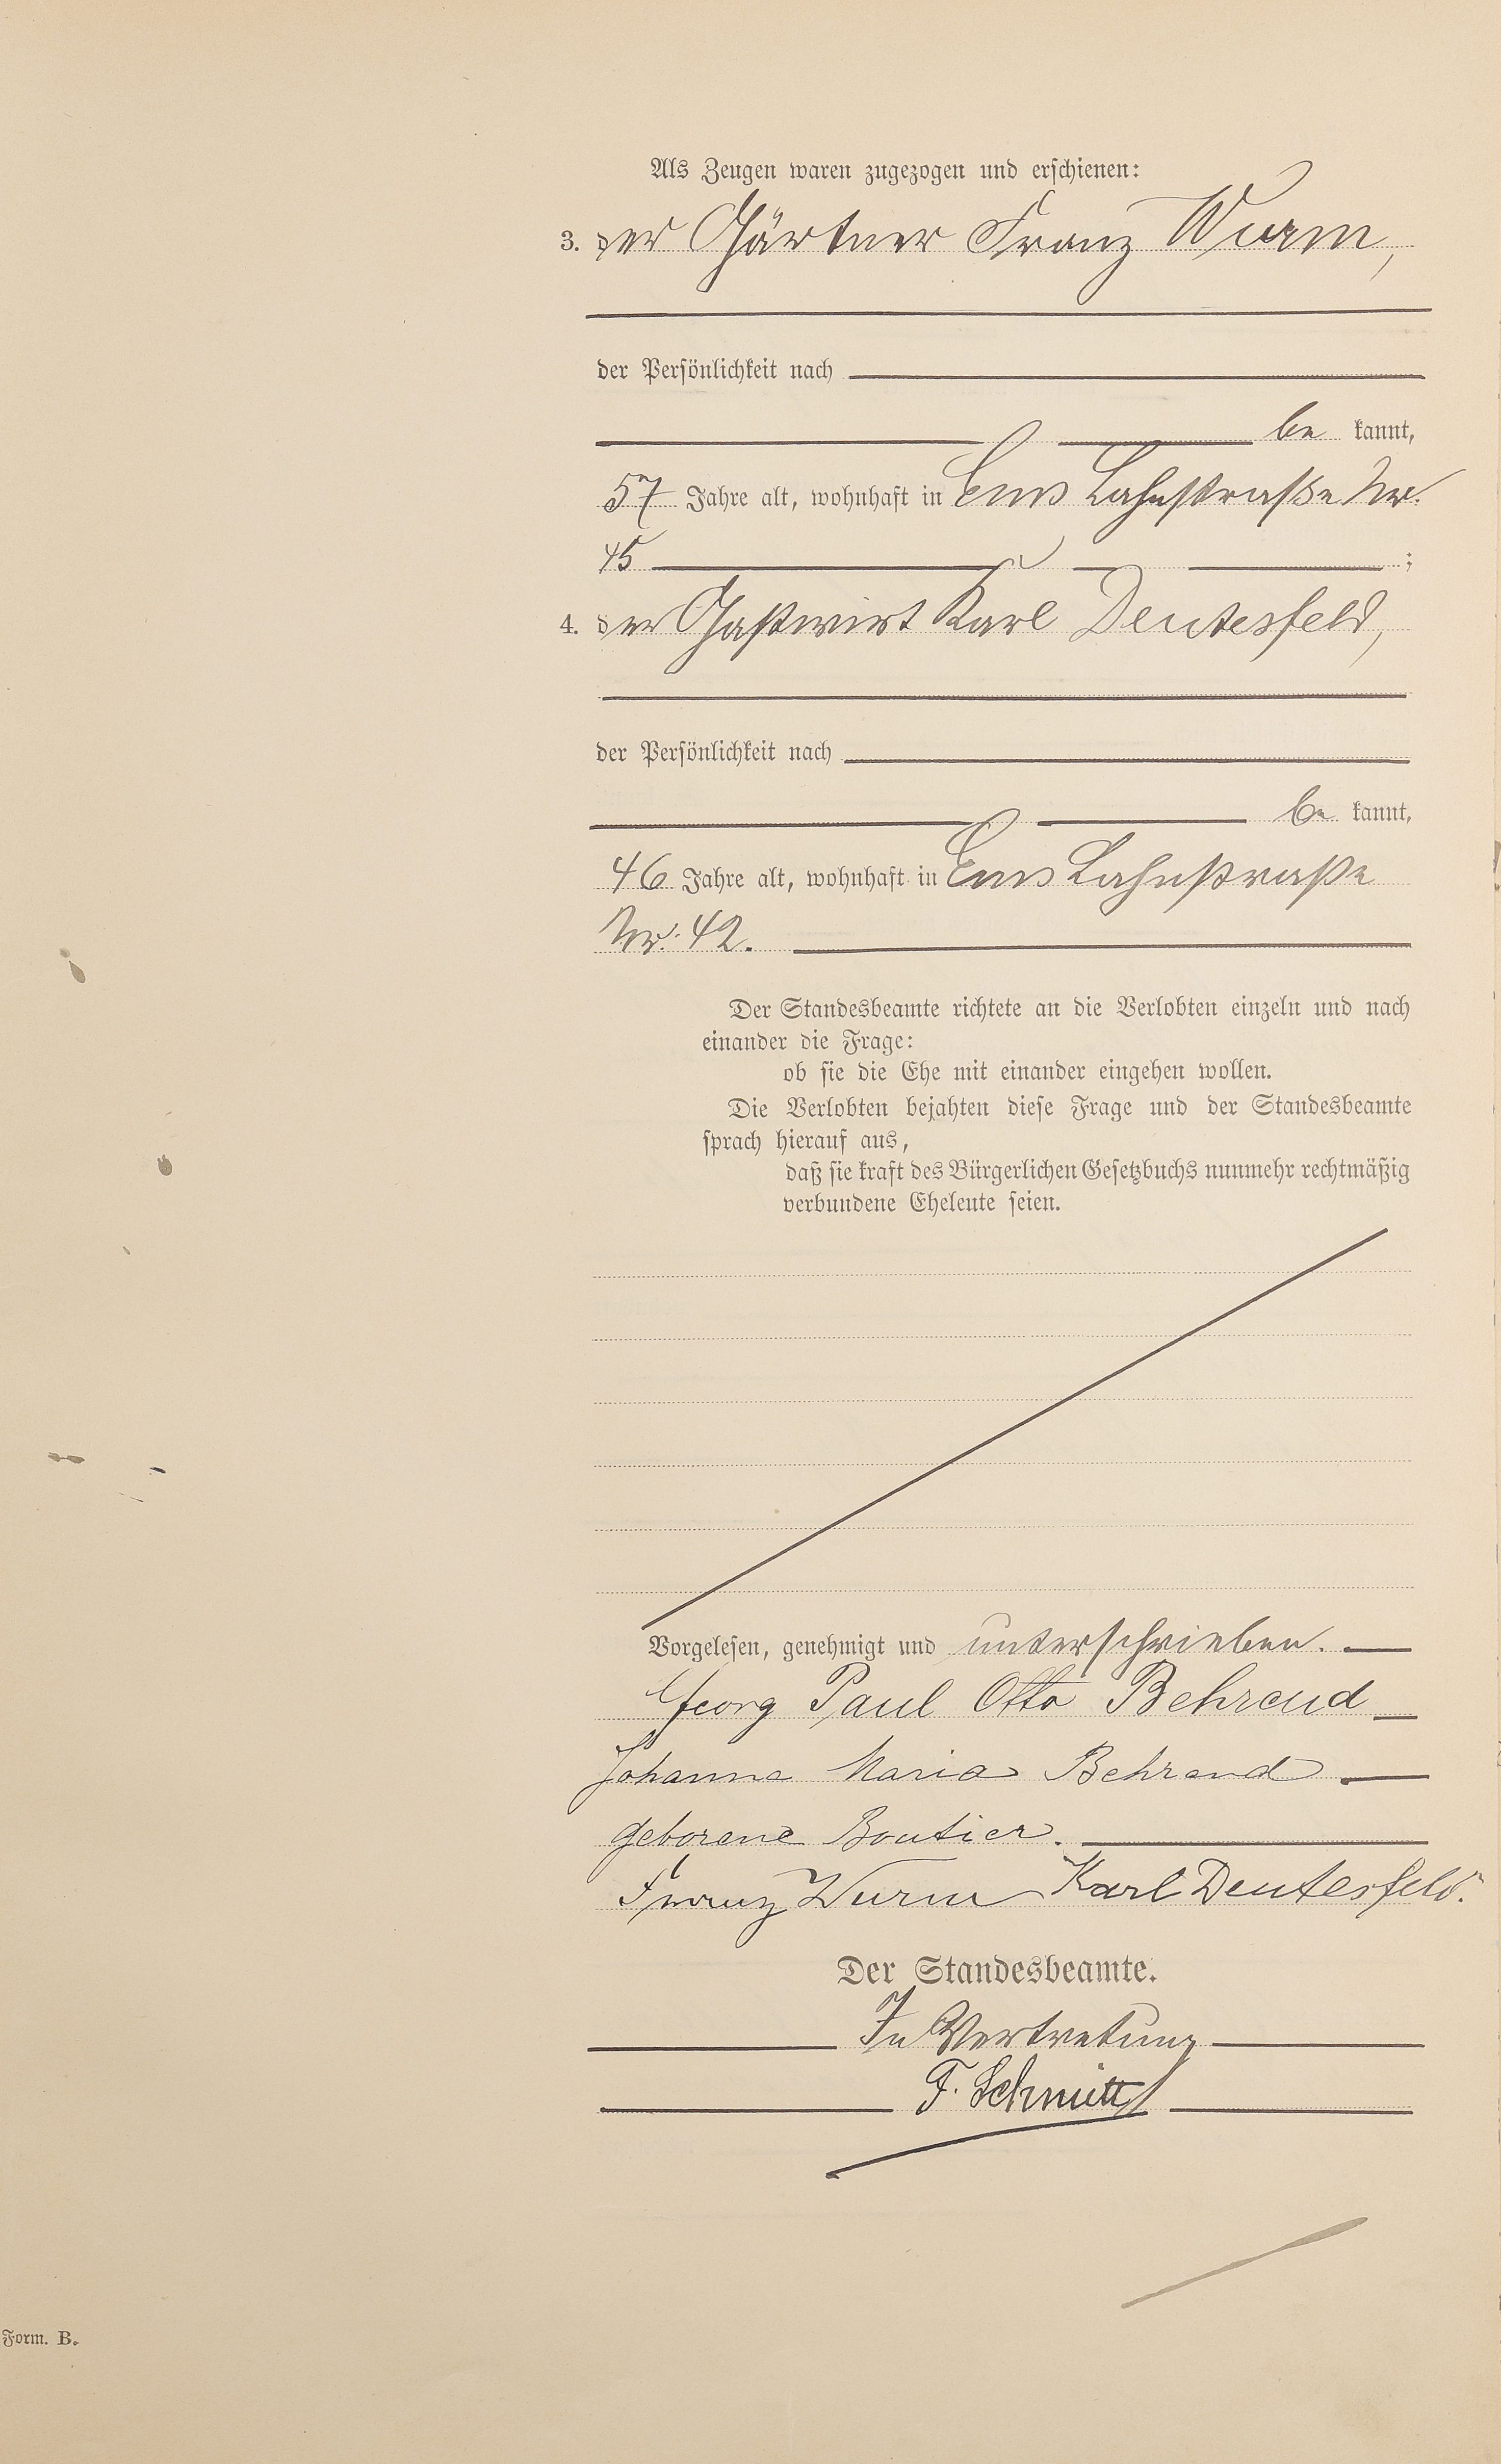 Als Zeugen waren zugezogen und erschienen:
3. der Gärtner Franz Wurm,
der Persönlichkeit nach
be kannt,
57 Jahre alt, wohnhaft in Ems Lahnstraße Nr.
45 ;
4. der Gastwirt Karl Deutesfeld,
der Persönlichkeit nach
be kannt,
46 Jahre alt, wohnhaft in Ems Lahnstraße
Nr. 42.
Der Standesbeamte richtete an die Verlobten einzeln und nach
einander die Frage:
ob sie die Ehe mit einander eingehen wollen.
Die Verlobten bejahten diese Frage und der Standesbeamte
sprach hierauf aus,
daß sie kraft des Bürgerlichen Gesetzbuchs nunmehr rechtmäßig
verbundene Eheleute seien.
Vorgelesen, genehmigt und unterschrieben.
Georg Paul Otto Behrend
Johanna Maria Behrend
geborene Boutier.
Franz Wurm Karl Deutesfeld.
Der Standesbeamte.
In Vertretung
F. Schmitt
Form. B.